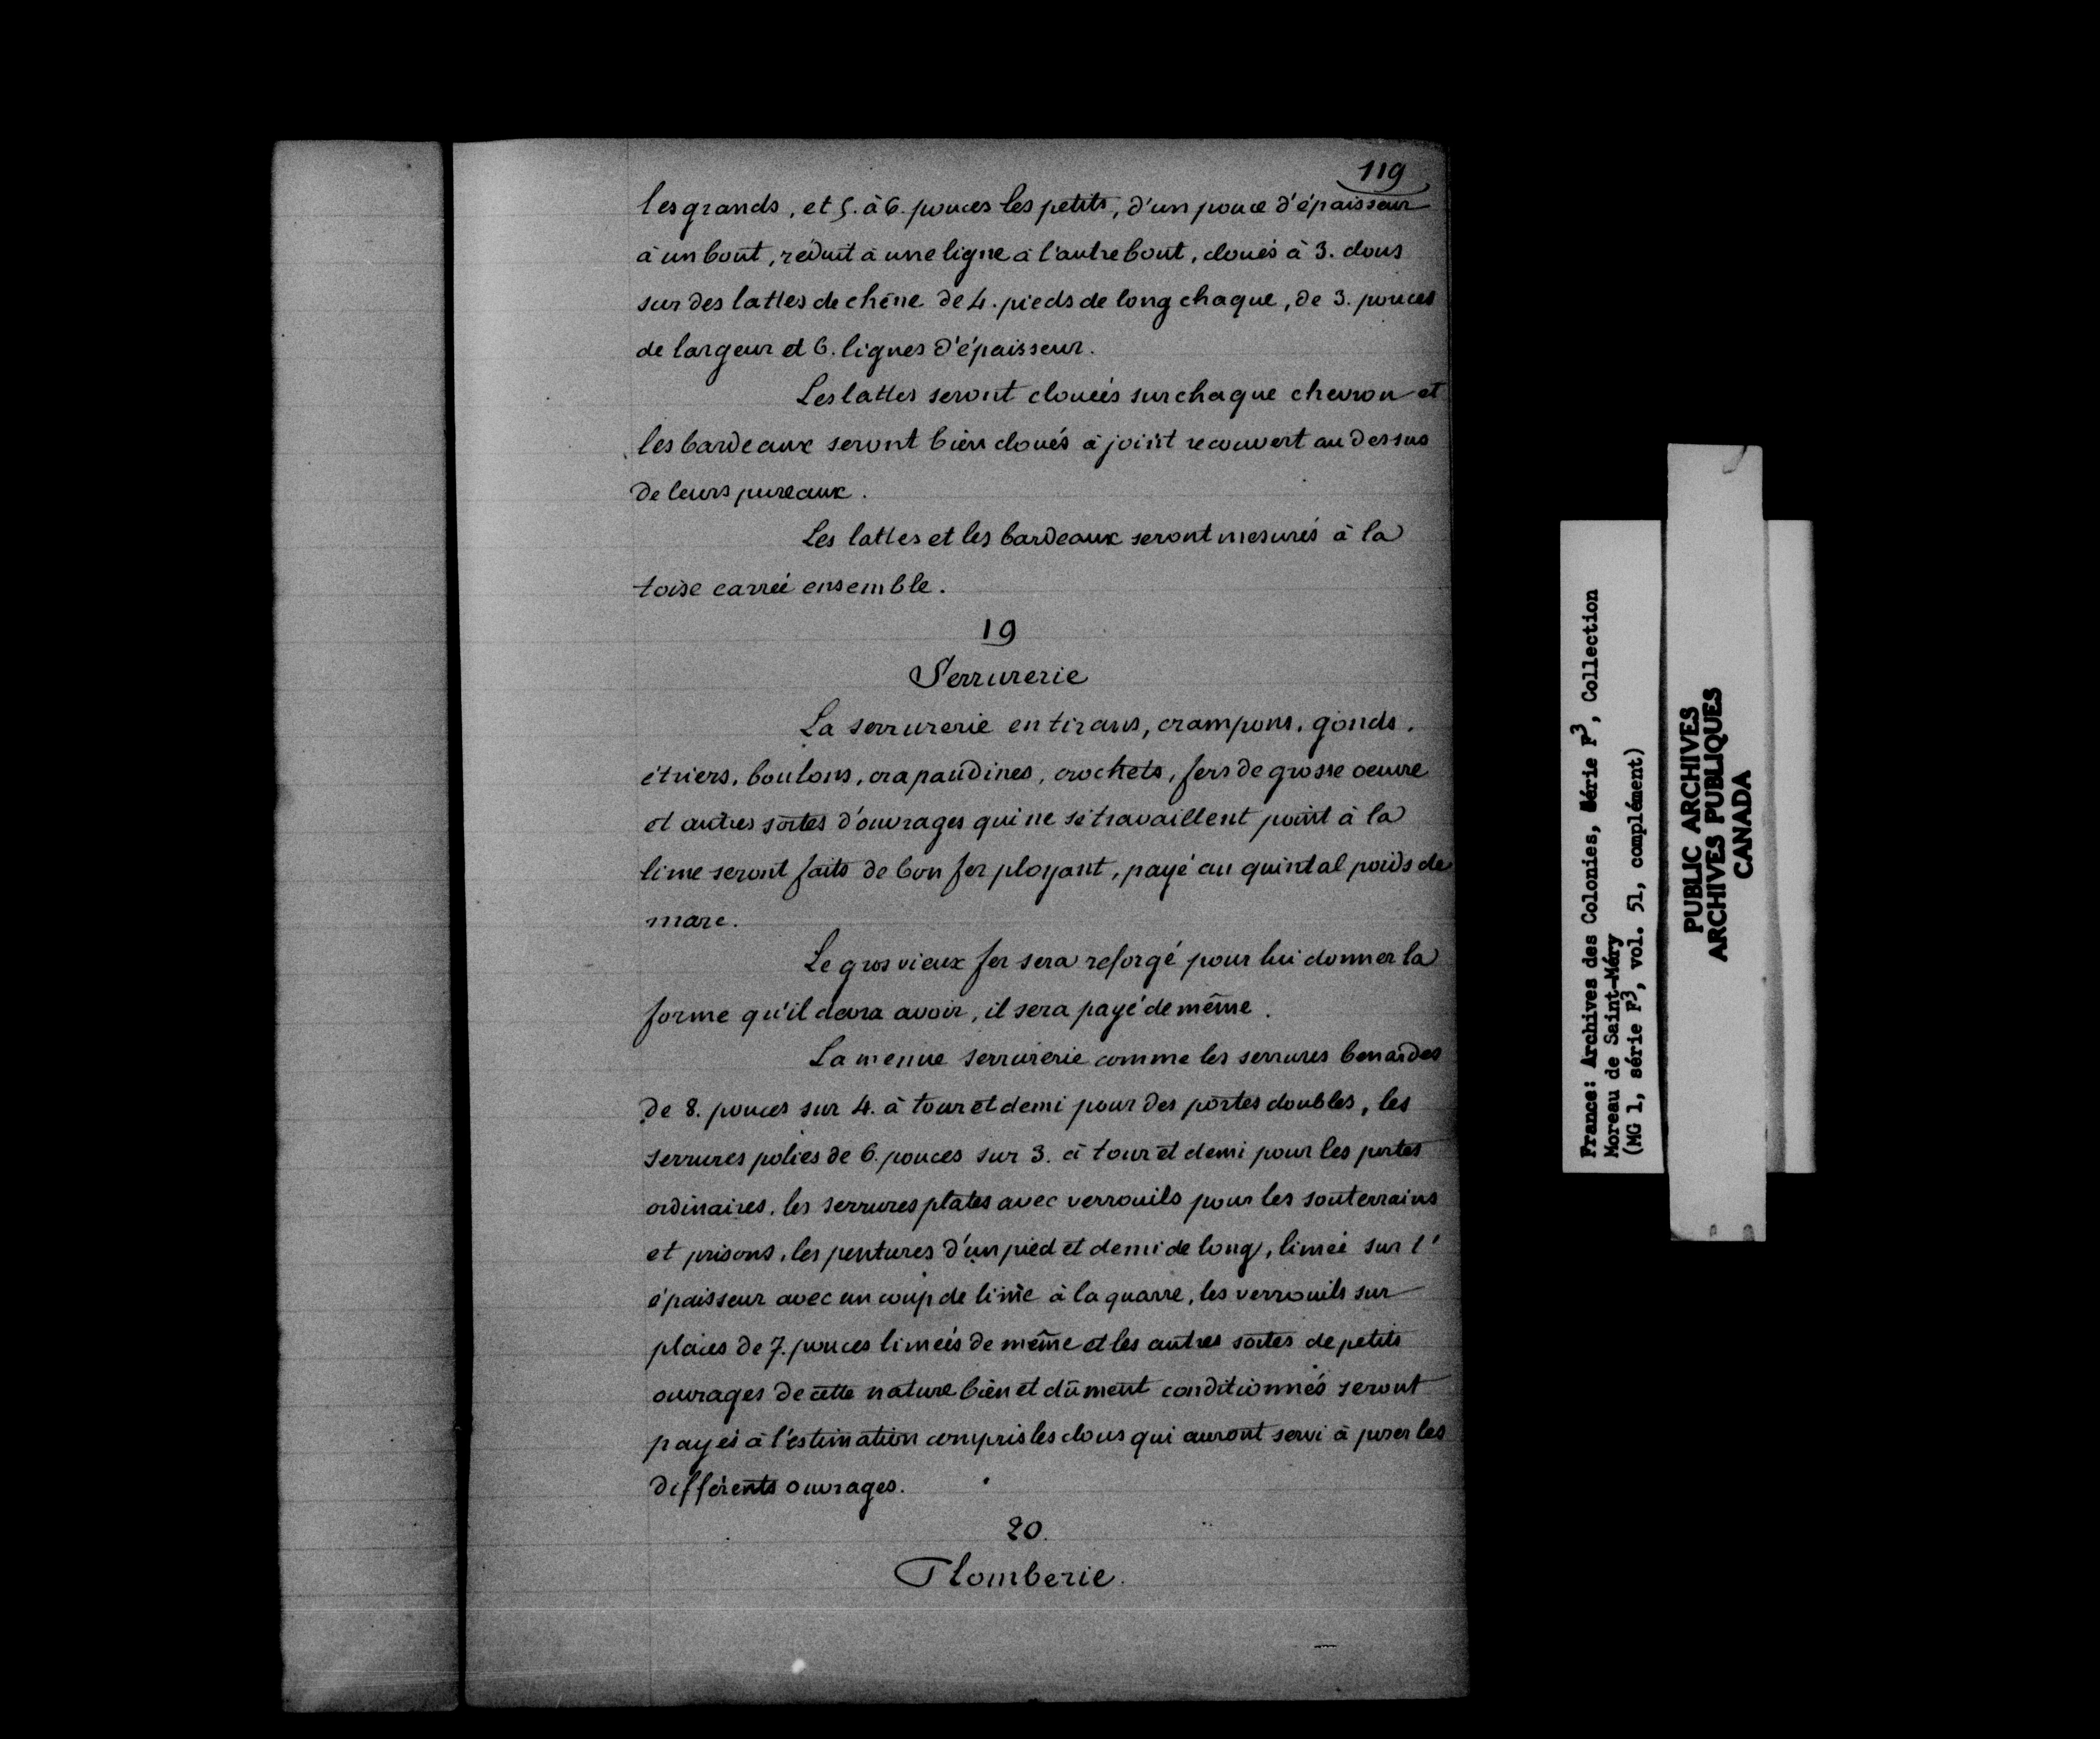 119
les grands, et 5. à 6. pouces les petits, d'un pouce d'épaisseur
à un bout, réduit à une ligne à l'autre bout, cloués à 3. clous
sur des lattes de chêne de 4. pieds de long chaque, de 3. pouces
de largeur et 6. lignes d'épaisseur.
Les lattes seront clouées sur chaque chevron et
les bardeaux seront bien cloués à joint recouvert au dessus
de leurs pureaux.
Les lattes et les bardeaux seront mesurés à la
toise carrée ensemble.
19
Serrurerie
La serrurerie en tirans, crampons, gonds,
étriers, boulons, crapaudines, crochets, fers de grosse oeuvre
et autres sortes d'ouvrages qui ne se travaillent point à la
lime seront faits de bon fer ployant, payé au quintal poids de
marc.
Le gros vieux fer sera reforgé pour lui donner la
forme qu'il devra avoir, il sera payé de même.
La menue serrurerie comme les serrures benardes
de 8. pouces sur 4. à tour et demi pour des portes doubles, les
serrures polies de 6. pouces sur 3. à tour et demi pour les portes
ordinaires, les serrures plates avec verrouils pour les souterrains
et prisons, les pentures d'un pied et demi de long, limée sur l'
épaisseur avec un coup de lime à la quarre, les verrouils sur
placés de 7. pouces limées de même et les autres sortes de petits
ouvrages de cette nature bien et dûment conditionnés seront
payés à l'estimation compris les clous qui auront servi à poser les
différents ouvrages.
20.
Plomberie.
France: Archives des Colonies, Série F3, Collection
Moreau de Saint-Méry
(MG 1, série F3, vol. 51, complément)
PUBLIC ARCHIVES
ARCHIVES PUBLIQUES
CANADA